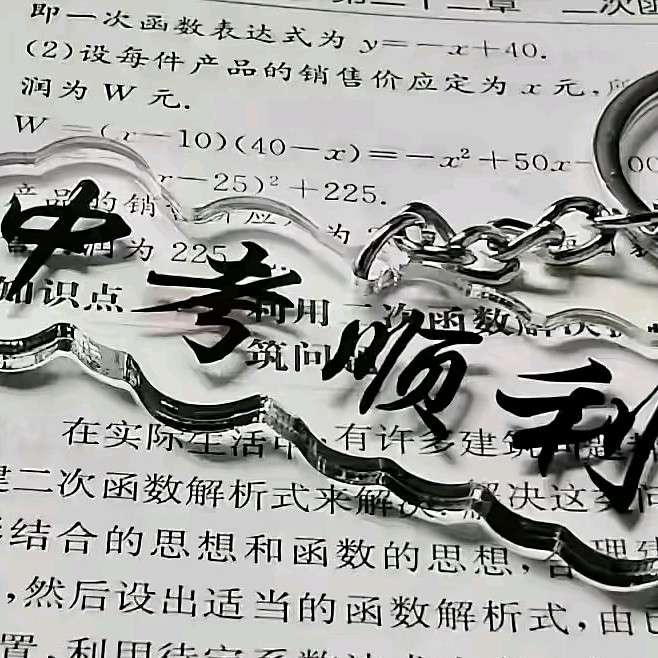 第二十二章 二次函
即一次函数表达式为 y=-x+40.
(2)设每件产品的销售价应定为 x 元,
润为 W 元.
W=(x-10)(40-x)=-x²+50x-
x-25)²+225.
产品的销
润为 225
中考顺利
知识点 利用二次函数解决
筑问题
在实际生活中,有许多建筑问题
建二次函数解析式来解决.解决这类问
结合的思想和函数的思想,合理建
,然后设出适当的函数解析式,由已
置,利用待定系数